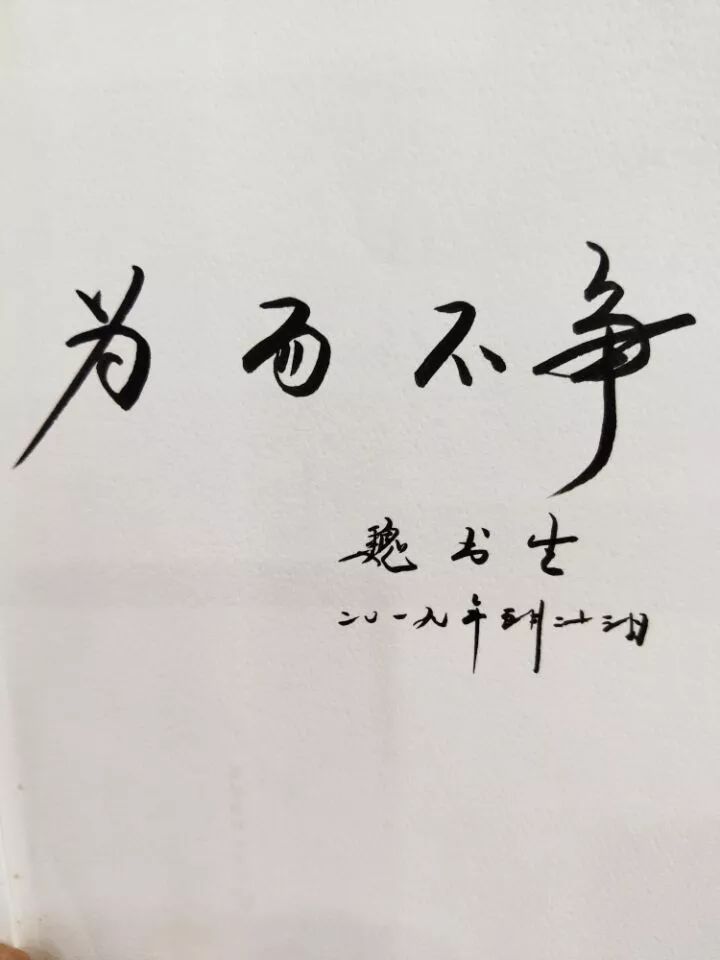 为而不争
魏书生
二〇一九年五月二十三日